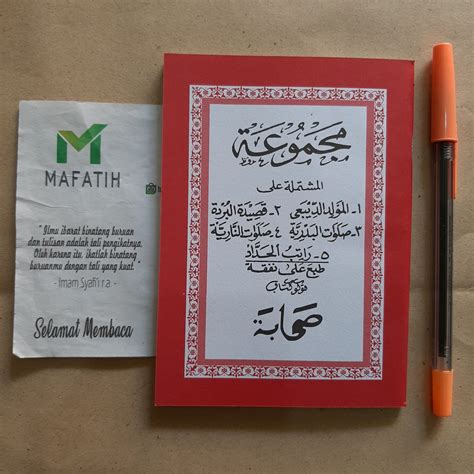 MAFATIH
"Ilmu ibarat binatang buruan
dan tulisan adalah tali pengikatnya,
Oleh karena itu, ikatlah binatang
buruanmu dengan tali yang kuat."
- Imam Syafi'i r.a. -
Selamat Membaca
مجموعة
المشتملة على
١- المولد الديبعي ٢- قصيدة البردة
٣- صلوات البدرية ٤- صلوات النارية
٥- راتب الحداد
طبع على نفقة
صحابة